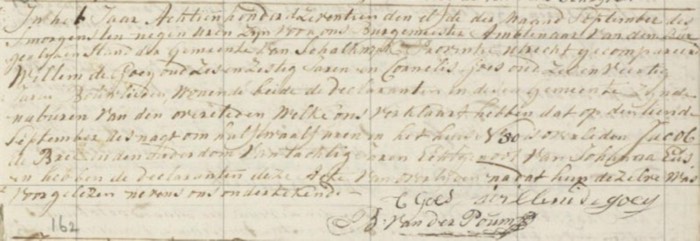 In het Jaar Achtien honderd Zeventien den elfde der maand September des
smorgensten negen uren zijn voor ons Burgemeester Ambtenaar van den Bur
gerlijken Stand der gemeente van Schalkwijk Provintie utrecht gecompareer
Willem de Goey oud Zes en Zestig Jaren en Cornelis Goes oud Zes en Veertig
Jaren Bouwlieden, Wonende beide de declaranten in deze gemeente Zijnde
naburen van den overleden Welke ons verklaart hebben dat op den tiend
September des nagt om half twaalf uren in het huis N 30 is overleden Jacob
de Bree in den ouderdom van tachtig jaren Echtgenoot van Johanna
en hebben de declaranten deze Akte van overleden na dat hun dezelve was
voorgelezen nevens ons onderteekend
C Goes Willem de goey
van der Poum
162